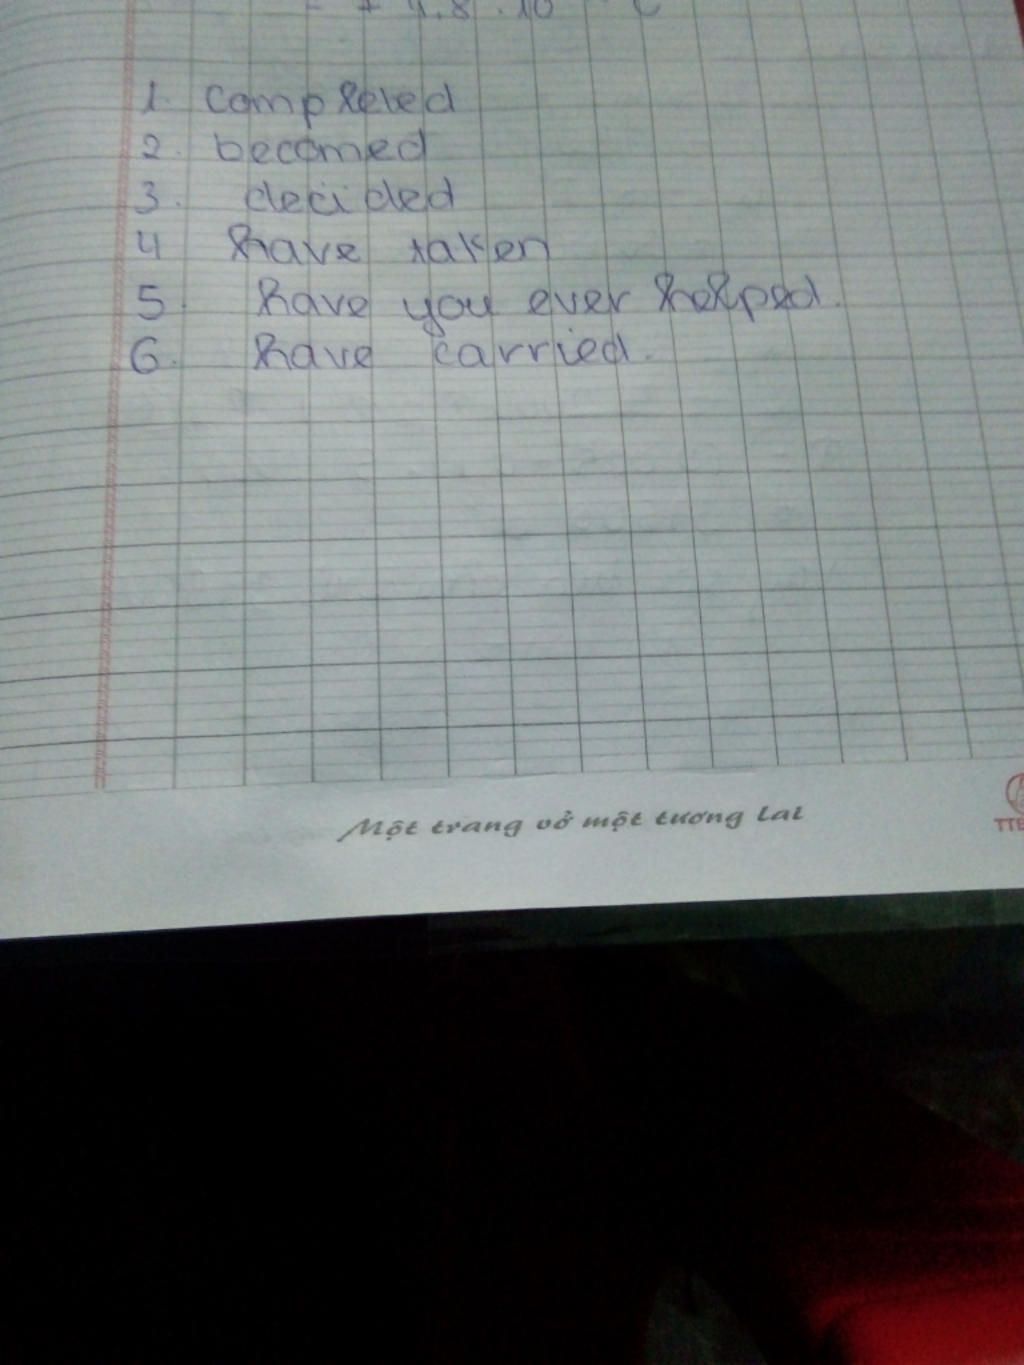 4.8.10
1. completed
2. becomed
3. decided
4 have taken
5. have you ever helped.
6. have carried.
Một trang vở một tương lai